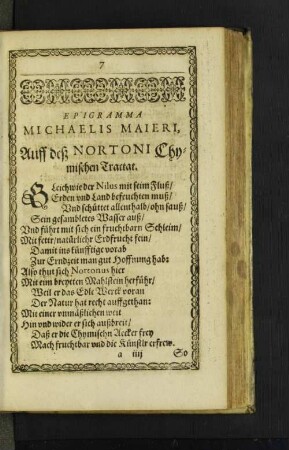 7
EPIGRAMMA
MICHAELIS MAIERI,
Auff deß NORTONI Chy-
mischen Tractat.
GLeichwie der Nilus mit seim Fluß/
Erden vnd Land befeuchten muß/
Vnd schüttet allenthalb/ ohn sauß/
Sein gesambletes Wasser auß/
Vnd führt mit sich ein fruchtbarn Schleim/
Mit fettr/ natürlichr Erdfrucht fein/
Damit ins künfftige vorab
Zur Erndzeit man gut Hoffnung hab:
Also thut sich Nortonus hier
Mit eim breytten Mahlstein herführ/
Weil er das Edle Werck voran
Der Natur hat recht auffgethan:
Mit einer vnmäßlichen weit
Hin vnd wider er sich außbreit/
Daß er die Chymischn Aecker frey
Mach fruchtbar vnd die Künstlr erfrew.
a iiij So